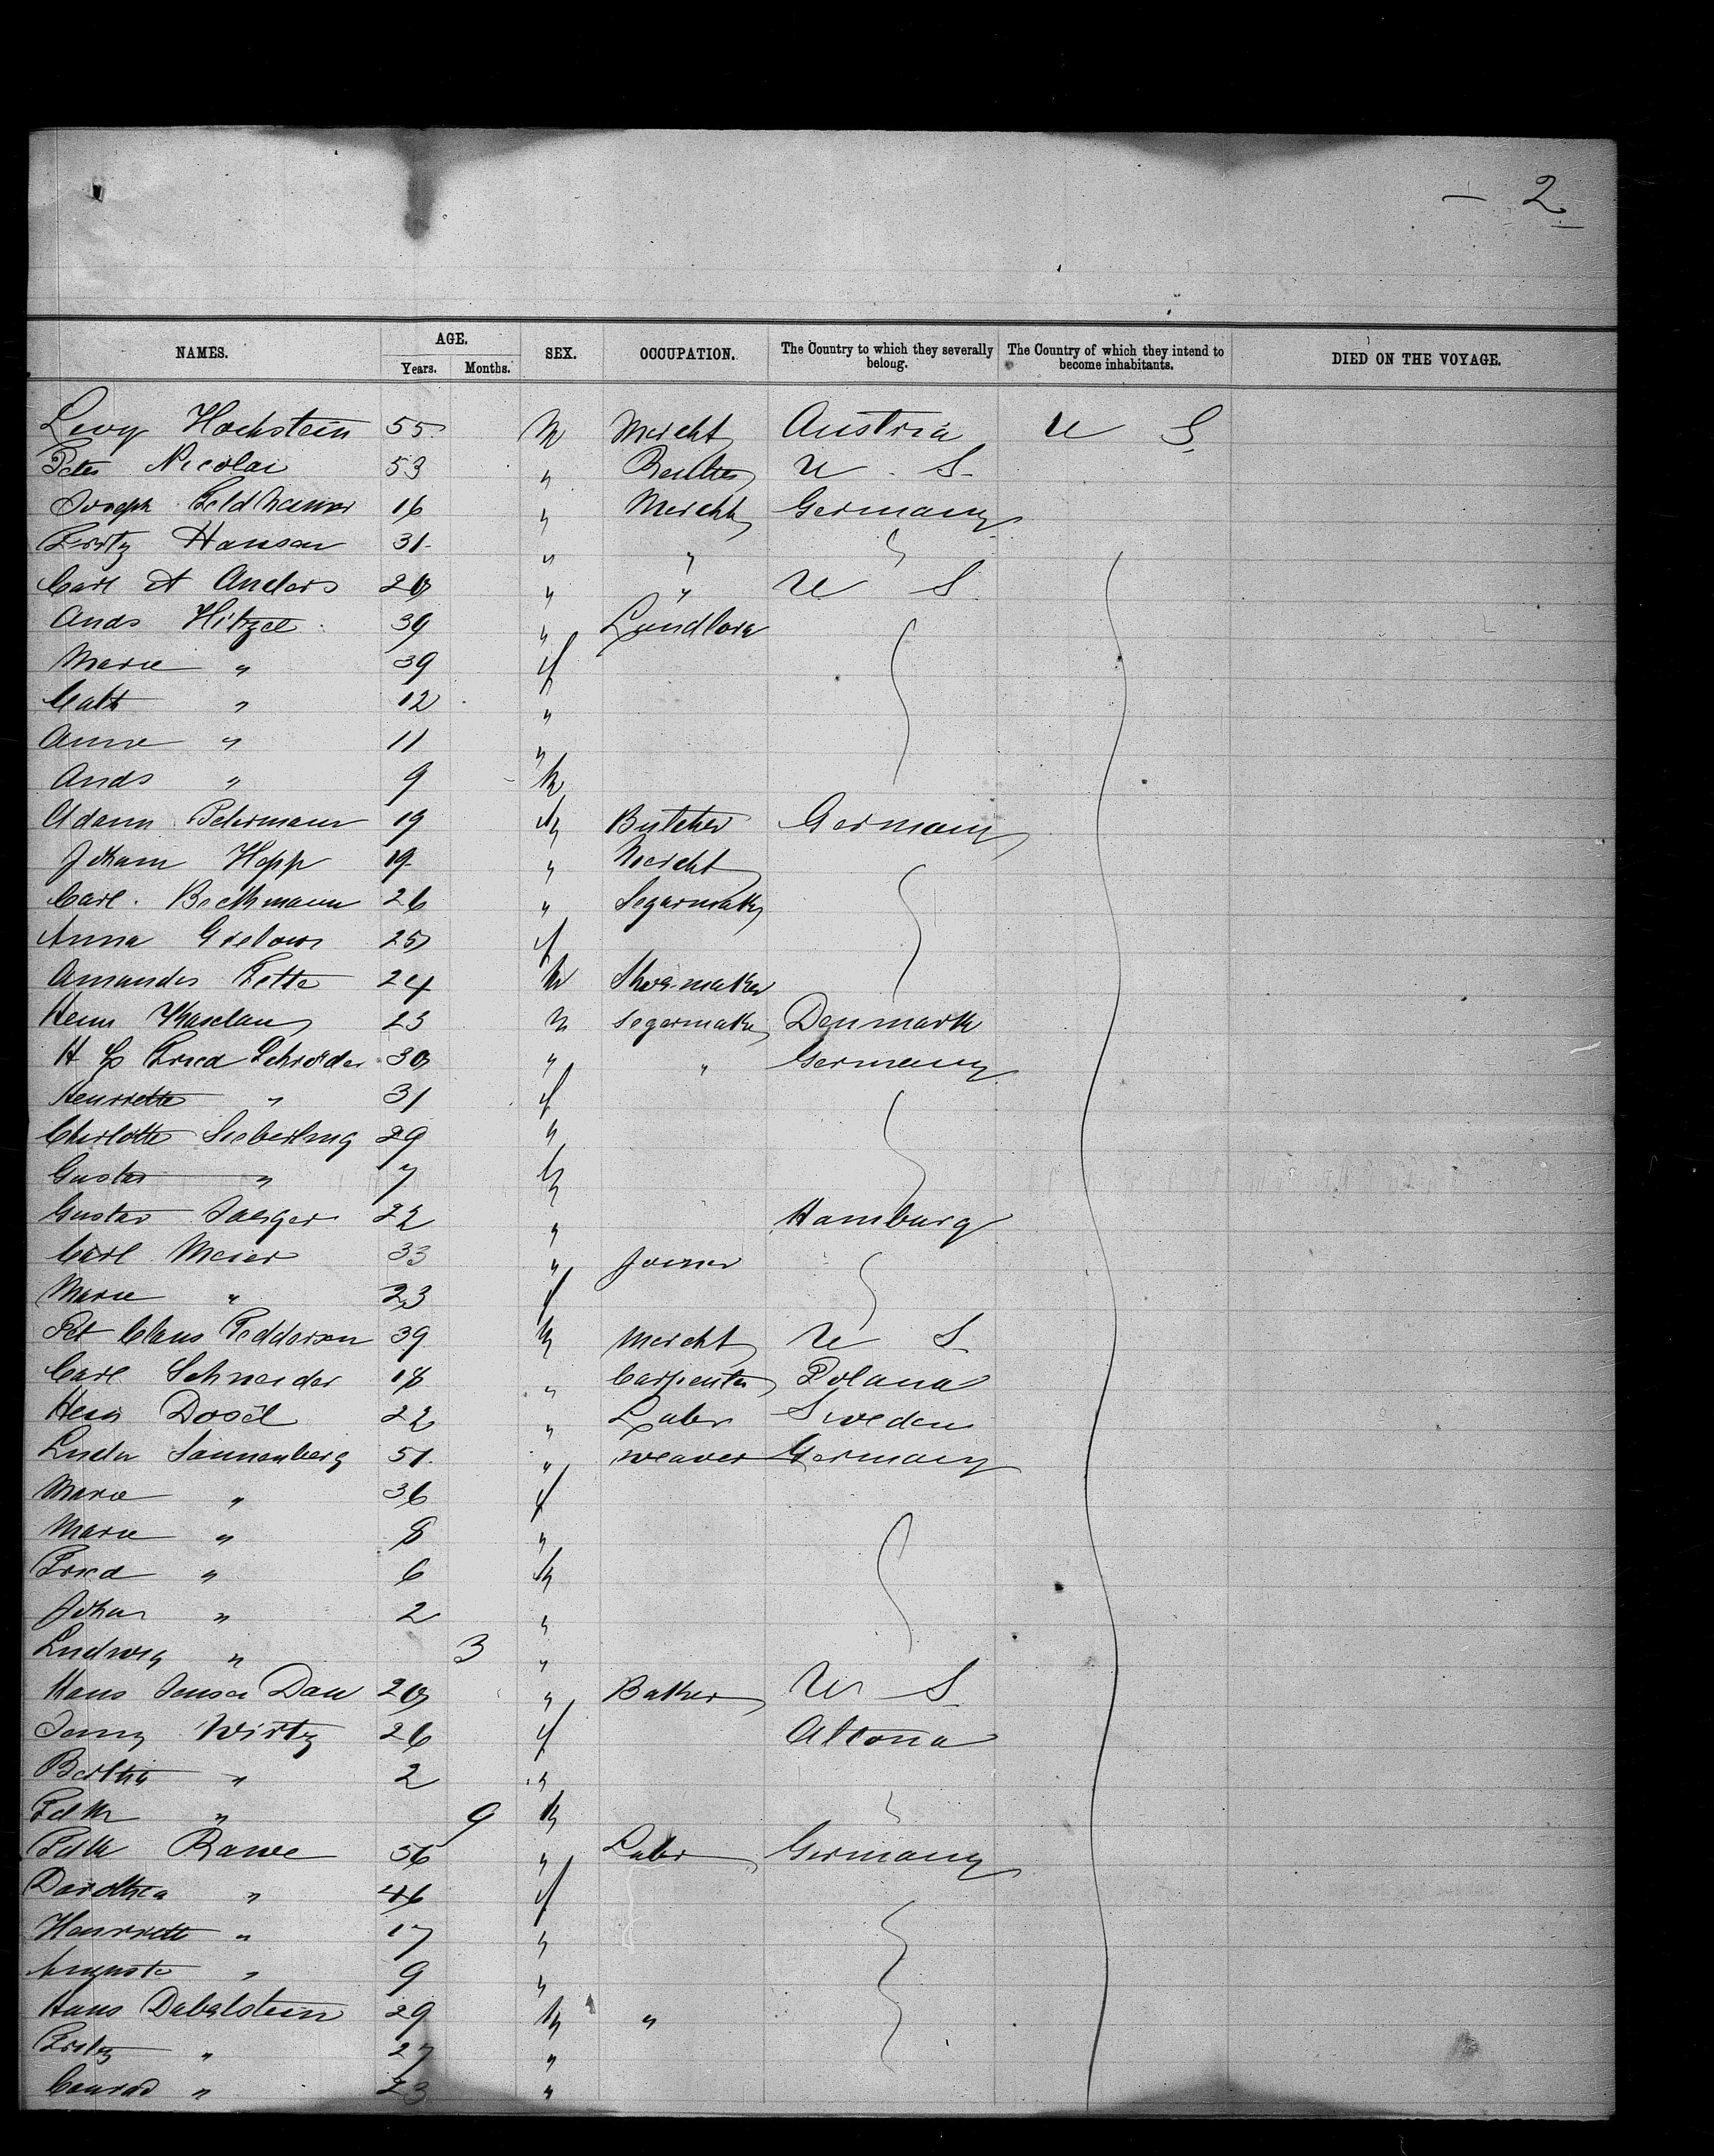 - 2
NAMES. AGE. SEX. OCCUPATION. The Country to which they severally belong. The Country of which they intend to become inhabitants. DIED ON THE VOYAGE.
Years. Months.
Levy Hochstein 55 M Mercht Austria U S
Peter Nicolai 53 " U S
Joseph Feldhamer 16 " Mercht Germany
Fritz Hansen 31 " "
Carl A Anders 20 " " U S
Ands Hitzel 39 "
Marie " 39 f
Cath " 12 "
Anna " 11 "
Ands " 9 M
Adam Petermann 19 M Butcher Germany
Joham Hopp 19 " Mercht
Carl Beckmann 26 " Segarmaker
Anna Grelown 25 f
Amandus Fette 24 M Shoemaker
Henn 23 M Segarmaker Denmark
H Fried Schroder 30 " " Germany
Henriette " 31 f
Charlotte Sieberling 29 "
Gustav " 7 M
Gustav Jaeger 22 " Hamburg
Carl Meier 33 " Joiner
Marie " 23 f
Pet Claus Feddersen 39 M Mercht U S
Carl Schneider 18 " Carpenter Poland
Hein Dosel 22 " Labr Sweden
Luder Sonnenberg 51 " weaver Germany
Marie " 36 f
Marie " 8 "
Fried " 6 M
Johan " 2 "
Ludwig " 3 "
Hans Jensen Dau 20 " Baker U S
Jenny Wirtz 26 f Altona
Bertha " 2 "
Fdk " 9 M
Fdk Rawe 56 " Labr Germany
Dorothea " 46 f
Henriette " 17 "
Auguste " 9 "
Hans Dabelstein 29 M "
Fritz " 27 "
Conrad " 23 "